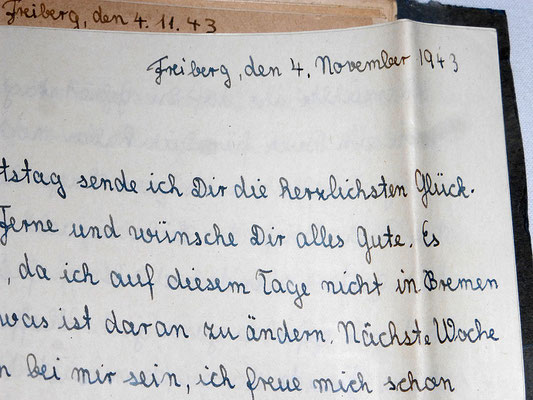 Freiberg, den 4. 11. 43
Freiberg, den 4. November 1943
tstag sende ich Dir die herzlichsten Glück-
Ferne und wünsche Dir alles Gute. Es
, da ich auf diesem Tage nicht in Bremen
was ist daran zu ändern. Nächste Woche
n bei mir sein, ich freue mich schon